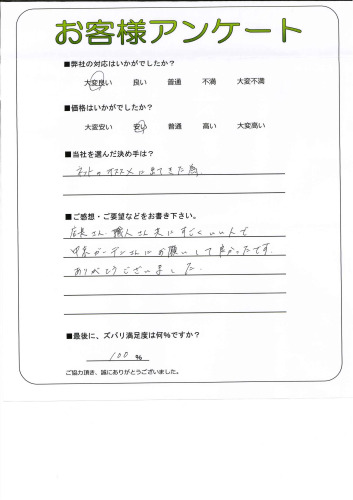 お客様アンケート
■弊社の対応はいかがでしたか？
大変良い 良い 普通 不満 大変不満
■価格はいかがでしたか？
大変安い 安い 普通 高い 大変高い
■当社を選んだ決め手は？
ネットのオススメに出てきた為
■ご感想・ご要望などをお書き下さい。
店長さん、職人さん共にすごくいい人で
ガーデンさんにお願いして良かったです。
ありがとうございました。
■最後に、ズバリ満足度は何%ですか？
100 %
ご協力頂き、誠にありがとうございました。